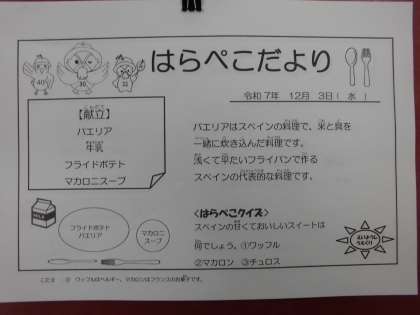 はらぺこだより
令和7年 12月 3日（水）
【献立】
パエリア
牛乳
フライドポテト
マカロニスープ
パエリアはスペインの料理で、米と具を
一緒に炊き込んだ料理です。
浅くて平たいフライパンで作る
スペインの代表的な料理です。
フライドポテト
パエリア
マカロニ
スープ
＜はらぺこクイズ＞
スペインの甘くておいしいスイートは
何でしょう。①ワッフル
②マカロン ③チュロス
ワッフルはベルギー、マカロンはフランスのお菓子です。